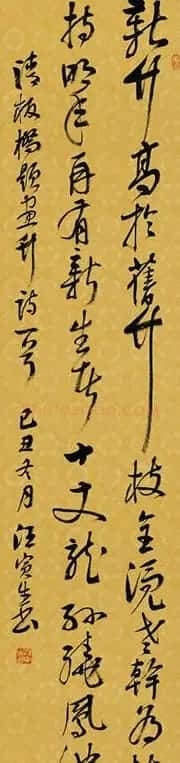 新竹高於舊竹枝全凭老幹為
持明年再有新生者十丈龍孫繞鳳池
清板橋題画竹詩一首 己丑冬月 汪寅生書